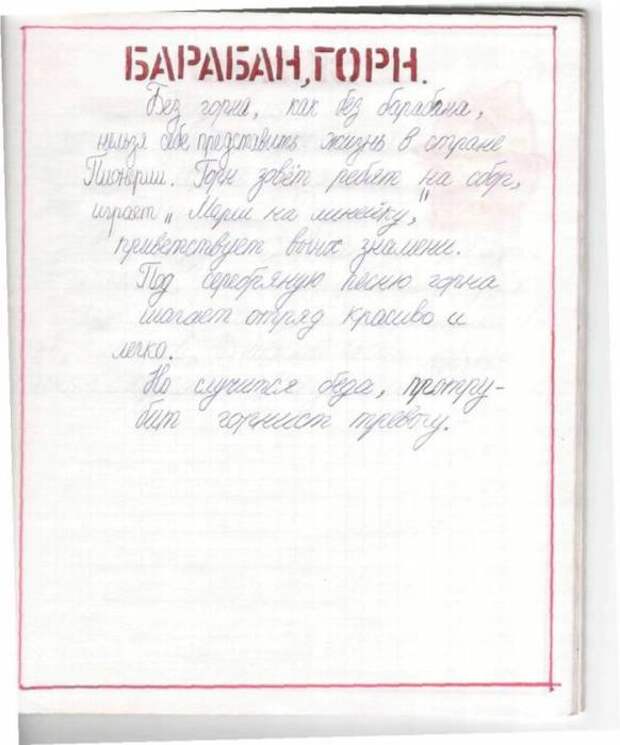 БАРАБАН, ГОРН.
Без горна, как без барабана,
нельзя себе представить жизнь в стране
Пионерии. Горн зовёт ребят на сбор,
играет „Марш на линейку",
приветствует вынос знамени.
Под серебряную песню горна
шагает отряд красиво и
легко.
Но случится беда, протру-
бит горнист тревогу.